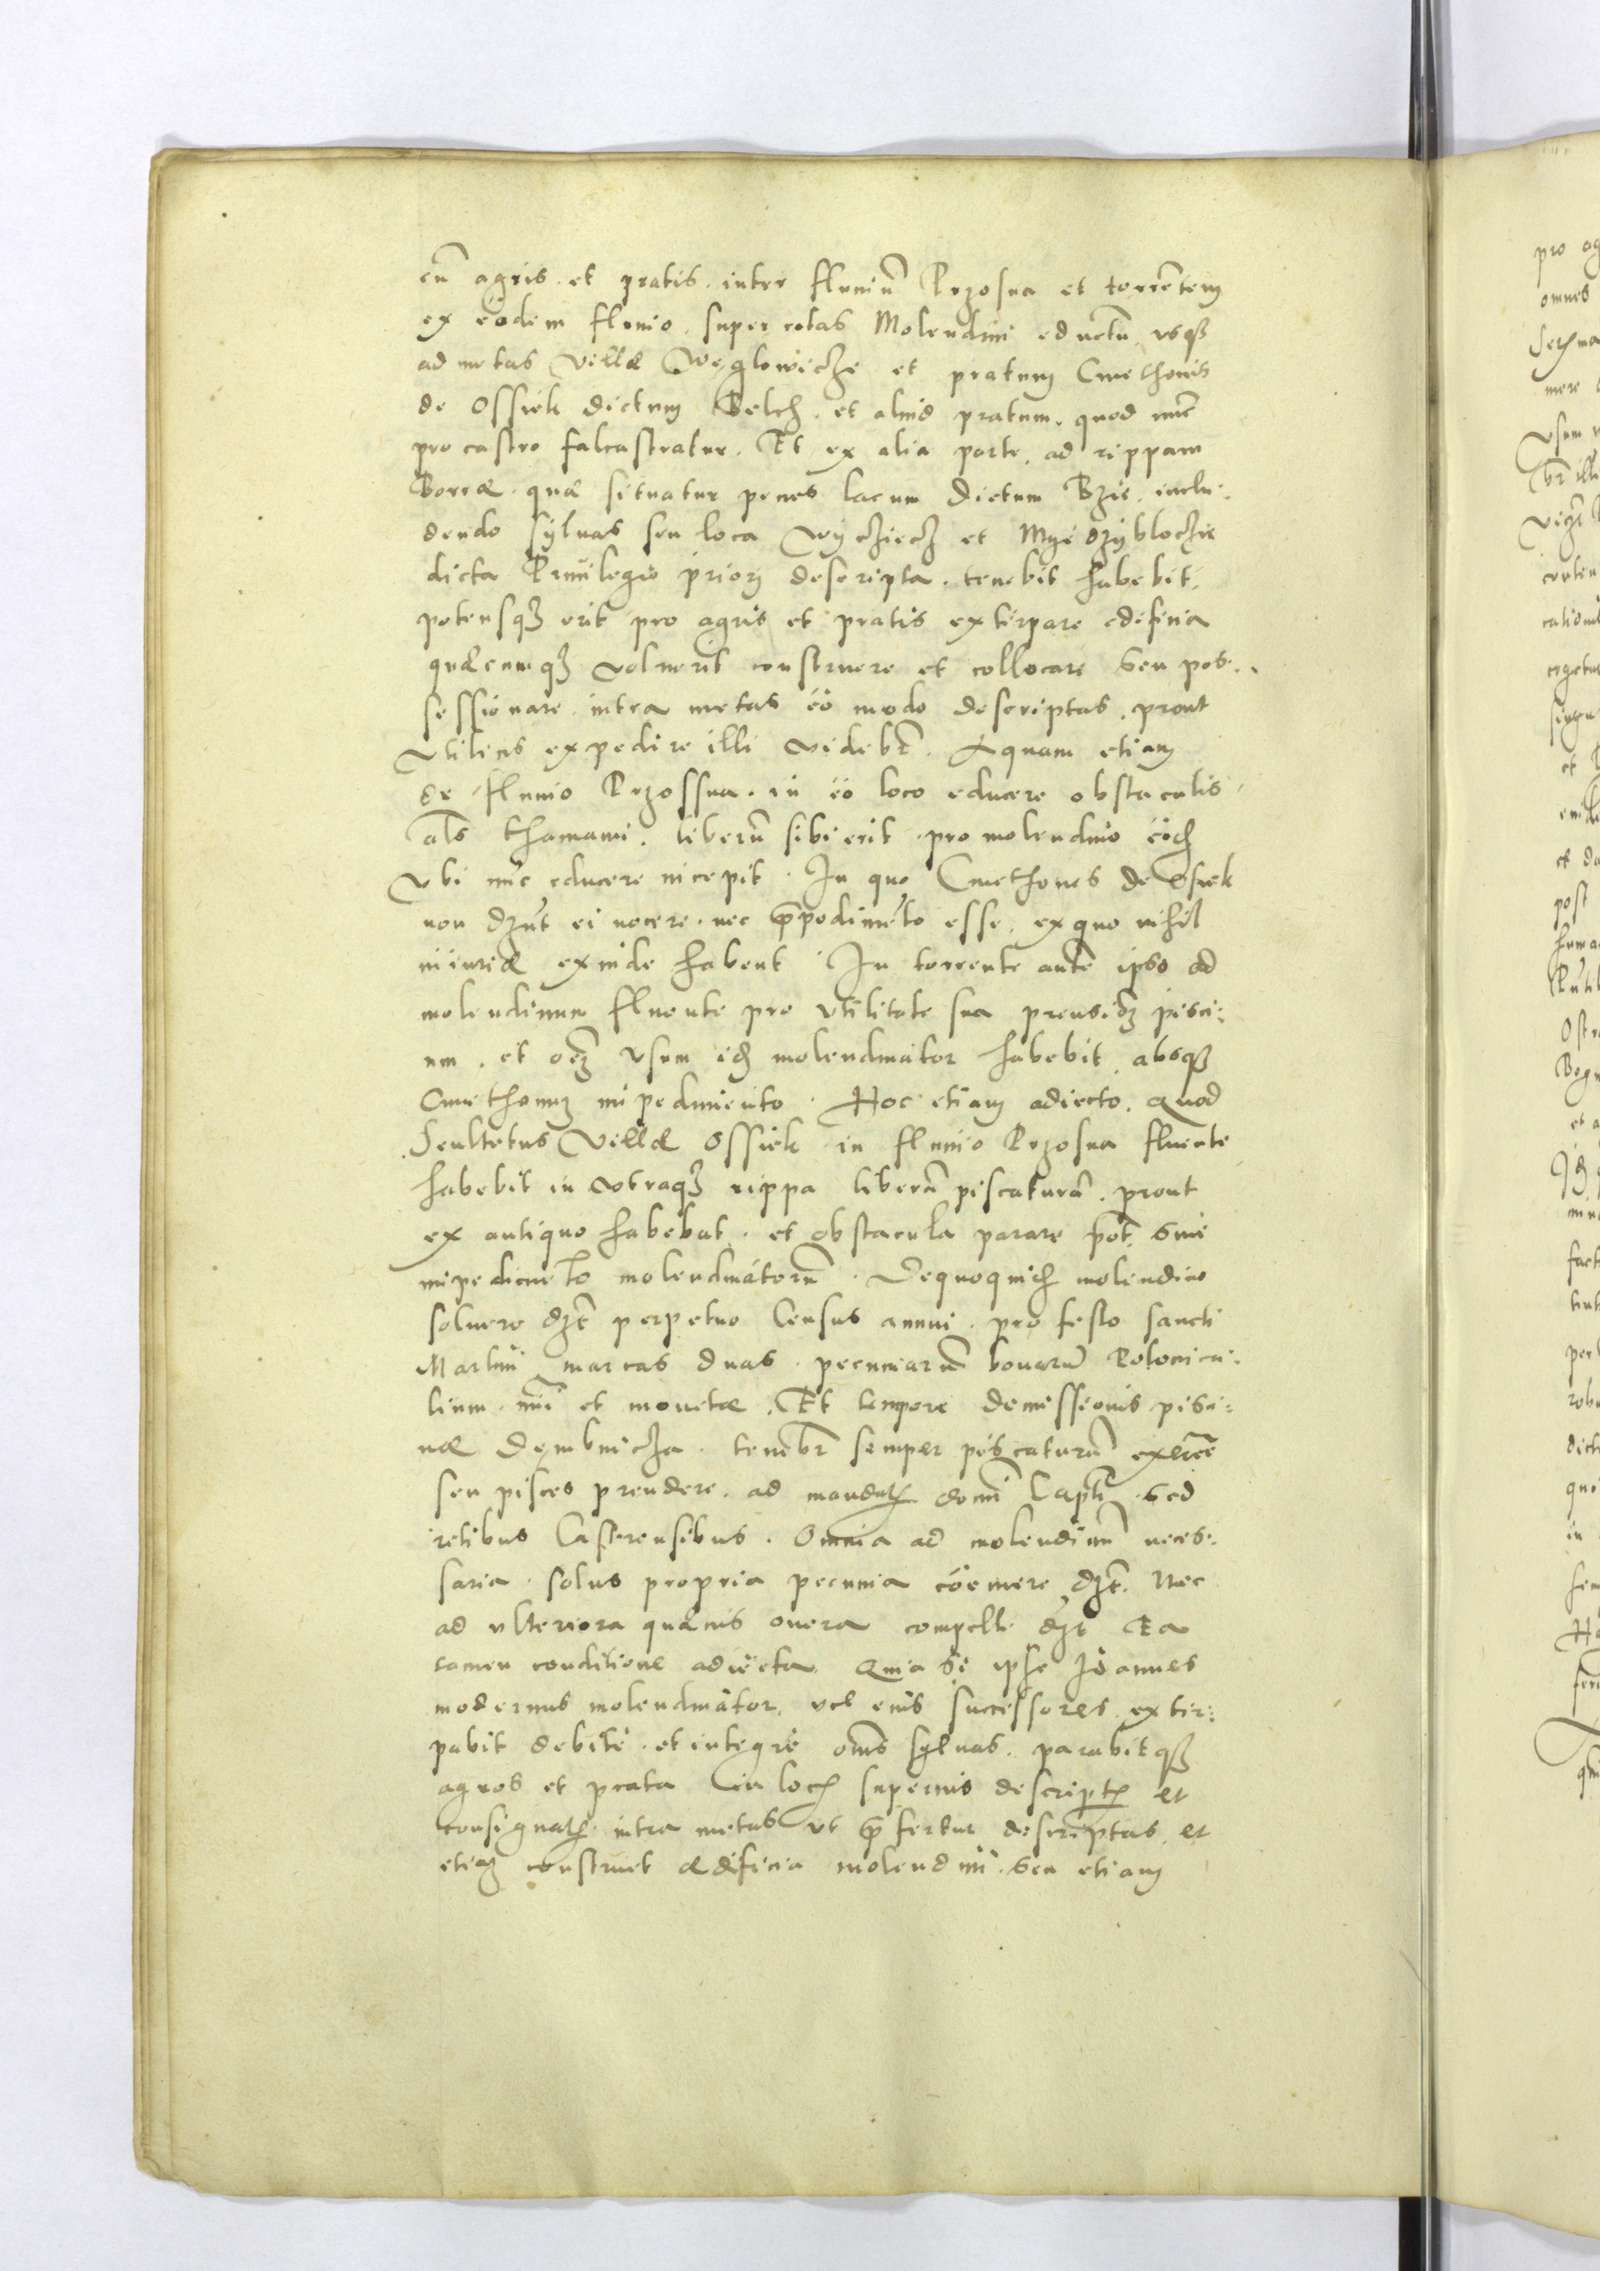 cū agris et pratis inter fluuiū Przosna et torrētem
ex eodem fluuio super rotas Molendini eductū usqȝ
ad metas Villæ Węglowicze et pratum Cmethonis
de Ossiek dictum Belch et aliud pratum quod nūc
pro castro falcastratur. Et ex alia parte ad rippam
Borræ quæ situatur penes lacum dictum Bzie inclu:
dendo syluas seu loca et
dicta Priuilegio priori descripta tenebit habebit
potensqȝ erit pro agris et pratis extirpare edificia
quæcumqȝ voluerit construere et collocare seu pos:
sessionare intra metas eo modo descriptas prout
vtilius expedire illi videbr̄. Aquam etiam
de fluuio Przossna in eo loco educere obstaculis
als thamami liberū sibi erit pro molendino eiođ
vbi nūc educere incepit. In quo Cmethones de Osiek
non dȝūt ei nocere nec p̄pedimēto esse ex quo nihil
iniuriæ exinde habent. In torrente autē ipso ad
molendinum fluente pro vtilitate sua prensioȝ pisci:
um et oēȝ vsum iđ molendinator habebit absqȝ
Cmethonuȝ impedimento. Hoc etiam adiecto quod
Scultetus Villæ Ossiek in fluuio Przosna fluente
habebit in vtraqȝ rippa liberā piscaturā prout
ex antiquo habebat et obstacula parare pōt sine
impedimēto molendinatorū. Dequoquiđ molendino
soluere dȝt perpetuo Census annui pro festo sancti
Martini marcas duas pecuniarū bonarū Polonica:
lium nūi et monetæ. Et tempore demissionis pisci:
næ Dembnicza tenebr̄ semper piscaturā exercē
seu pisces prendere ad mandatū domī Captī sed
retibus Castrensibus. Omnia ad molendinū neces:
saria solus propria pecunia coemere dȝt. Nec
ad vlteriora quæuis onera compelli dȝt Ea
tamen conditione adiecta Quia si ipse Joannes
modernus molendinator vel eius successores extir:
pabit debite et integre om̄s syluas parabitqȝ
agros et prata in locis superius descriptis et
consignatis intra metas vt p̄fertur descriptas et
etiaȝ construet ædificia molendini seu etiam